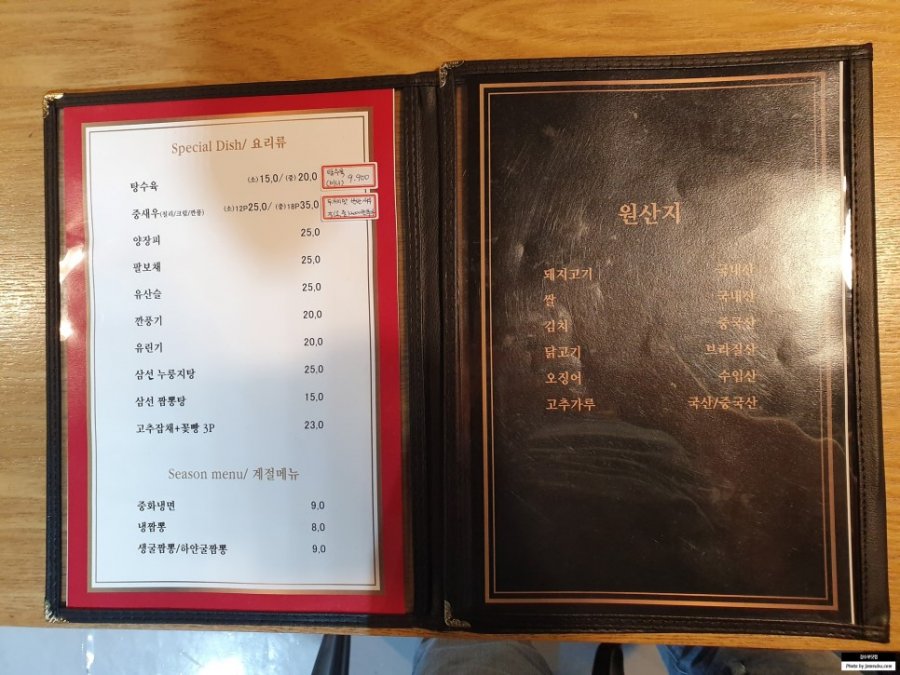 Special Dish/ 요리류
탕수육 (소)15,0/ (중)20,0
탕수육 (미니) 9,900
중새우(칠리/크림/깐풍) (소)12P25,0/ (중)18P35,0
양장피 25,0
팔보채 25,0
유산슬 25,0
깐풍기 20,0
유린기 20,0
삼선 누룽지탕 25,0
삼선 짬뽕탕 15,0
고추잡채+꽃빵 3P 23,0
Season menu/ 계절메뉴
중화냉면 9,0
냉짬뽕 8,0
생굴짬뽕/하얀굴짬뽕 9,0
원산지
돼지고기 국내산
쌀 국내산
김치 중국산
닭고기 브라질산
오징어 수입산
고추가루 국산/중국산